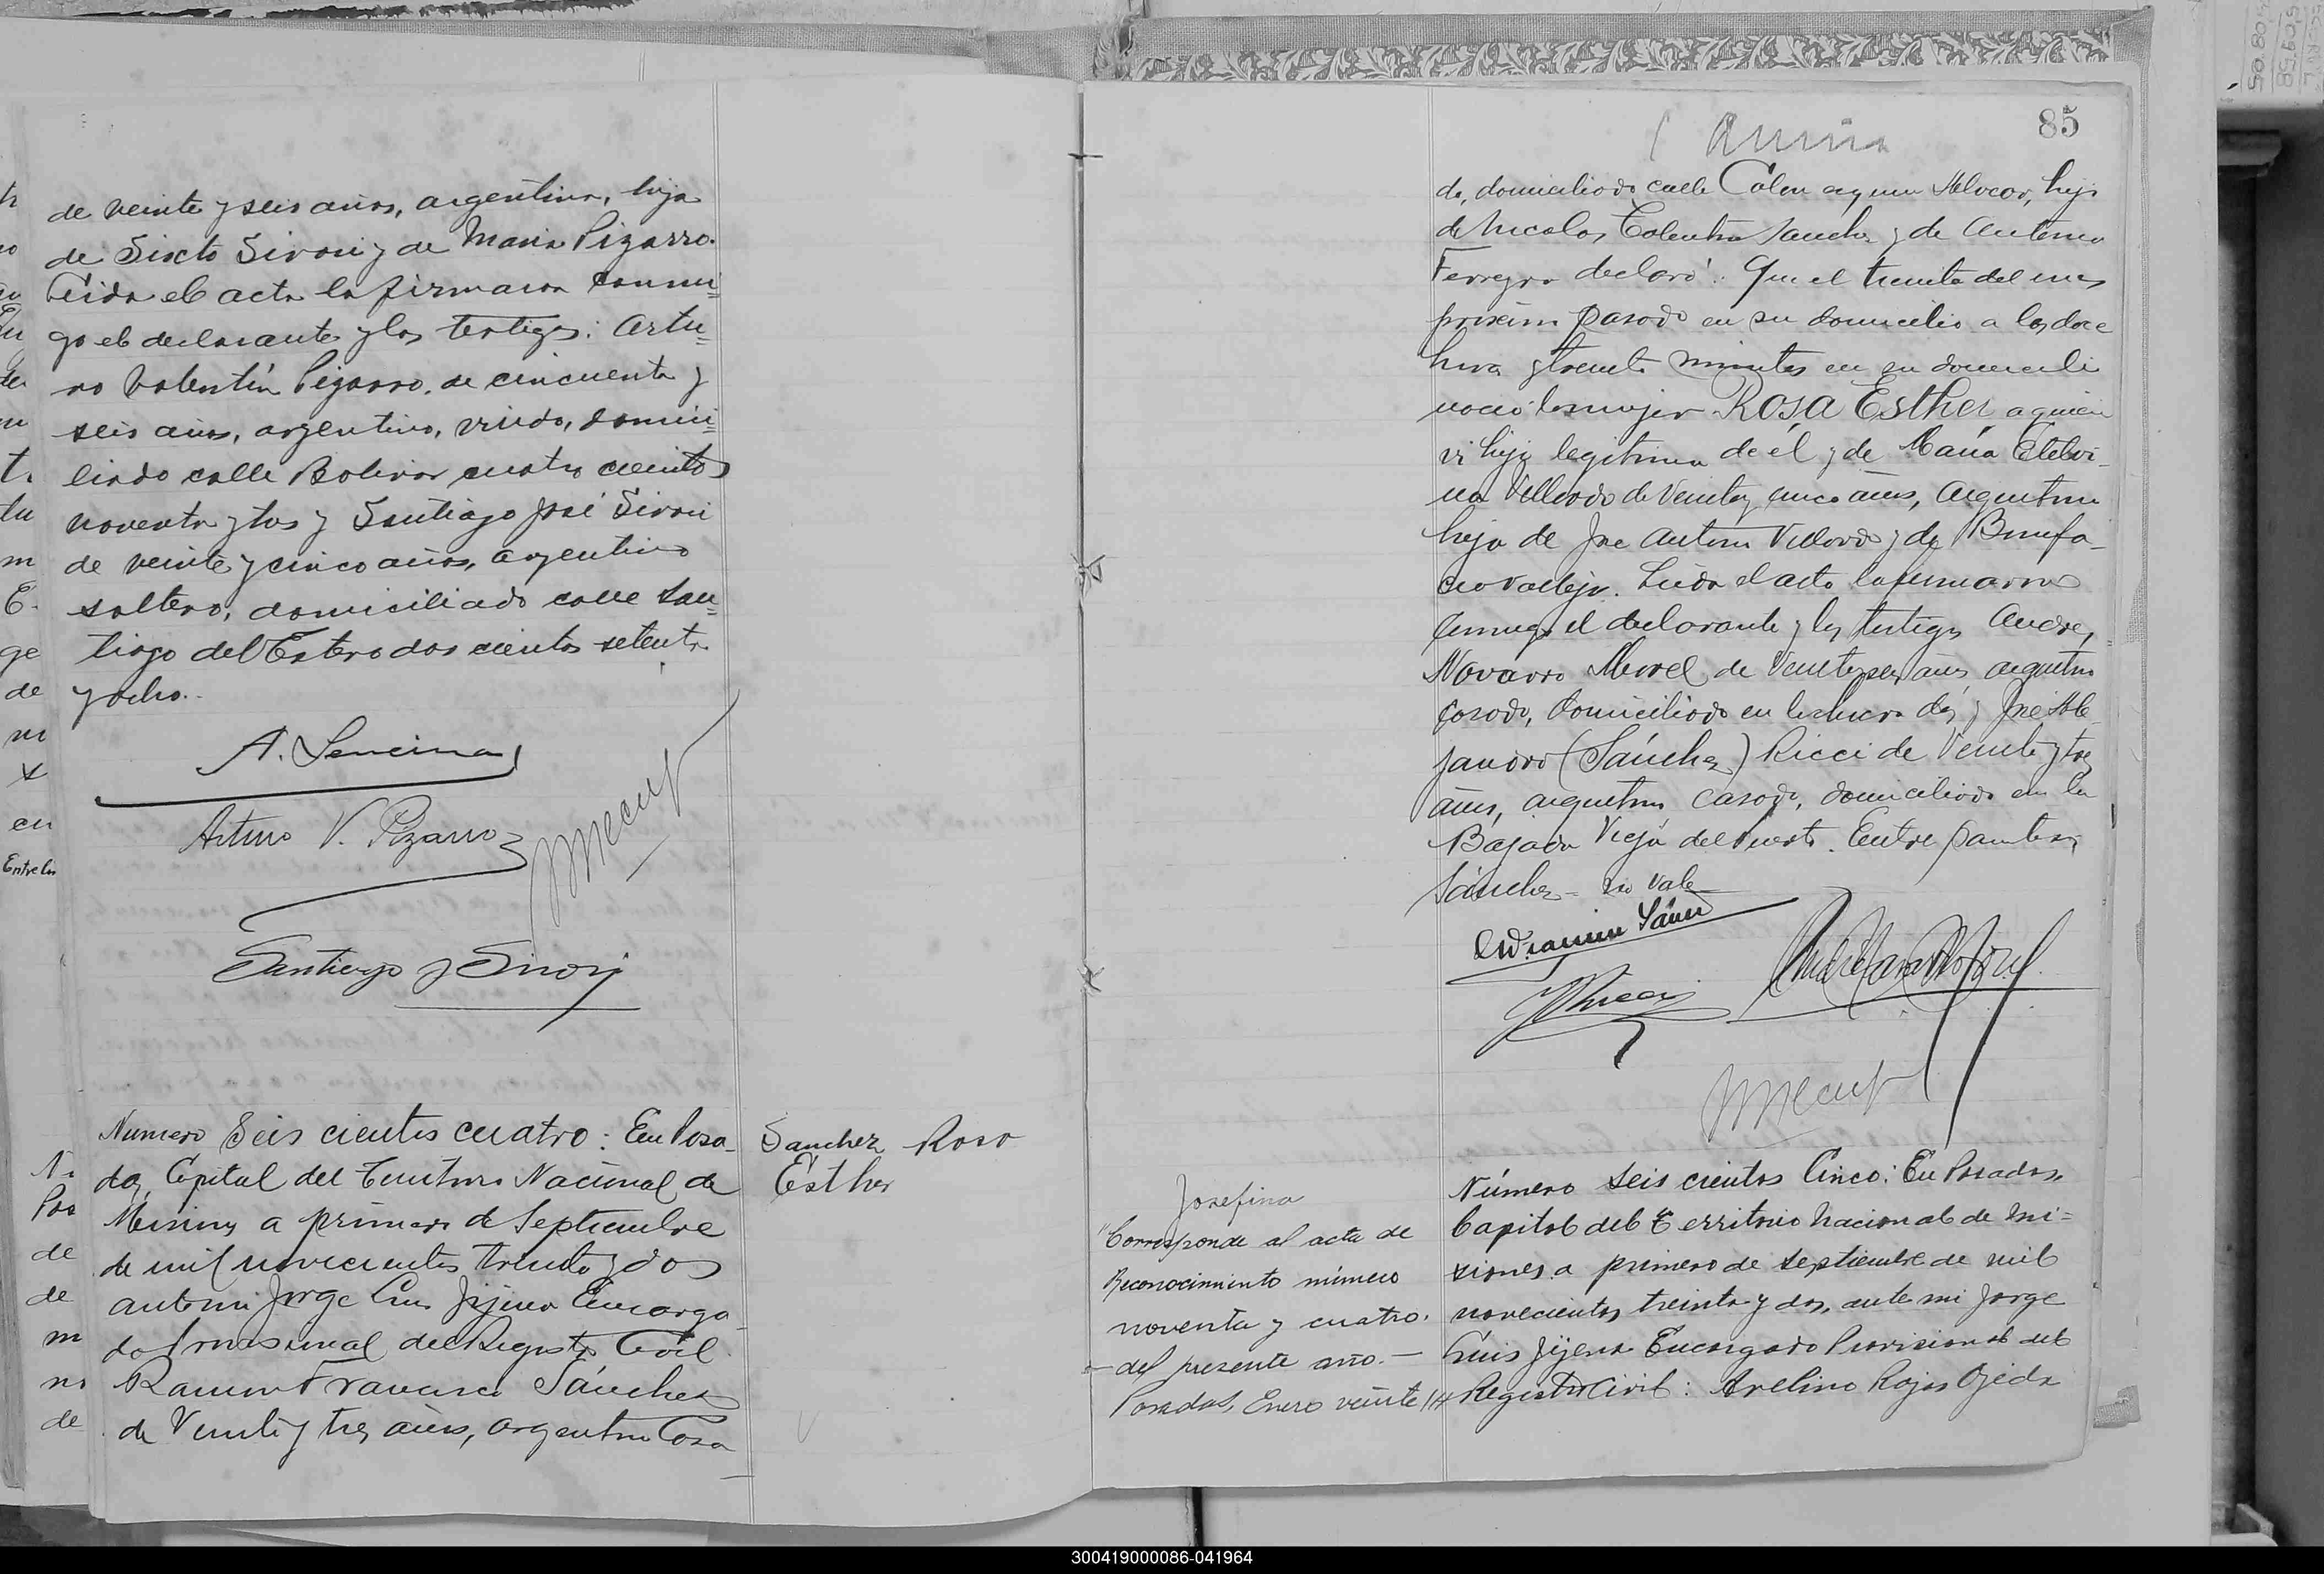 de veinte y seis años, argentina, hija
de Sixto Sivori y de Maria Pizarro.
Leida el acta la firmaron conmi=
go el declarante y los testigos: Artu=
ro Valentín Pizarro, de cincuenta y
seis años, argentino, viudo, domici=
liado calle Bolivar cuatro cientos
noventa y tres y Santiago José Sivori
de veinte y cinco años, argentino
soltero, domiciliado calle San=
tiago del Estero dos cientos setenta
y ocho.-
A. Lencina
Arturo V. Pizarro
Santiago J Sivori
Numero Seis cientos cuatro: En Posa-
das, Capital del Territorio Nacional de
Misiones a primero de Septiembre
de mil novecientos treinta y dos
ante mi Jorge Luis Jijena Encarga-
do Provisional del Registro Civil
Ramon Francisco Sánchez
de Veinte y tres años, argentino Casa
Sanchez Rosa
Esther
85
do, domiciliado calle Colon esquina Alvear, hijo
de Nicolas Tolentino Sanchez y de Antonia
Ferreyra declaró: Que el treinta del mes
próximo pasado en su domicilio a las doce
horas y treinta minutos en su domicilio
nació la mujer ROSA Esther a quien
vi hija legitima de él y de María Etelvi-
na Villordo de Veinte y cinco años, Argentina
hija de Jose Antonio Villordo y de Bonifa-
cia Vallejo. Leida el acta la firmaron
conmigo el declarante y los testigos Andres
Navarro Morel de Veinte y seis años argentino
casado, domiciliado en la chacra dos y José Ale
jandro (Sánchez) Ricci de Veinte y tres
años, argentino casado, domiciliado en la
Bajada Vieja del Puerto. Entre parentesis
Sánchez - no vale
JARicci
Josefina
"Corresponde al acta de
Reconocimiento número
noventa y cuatro.
- del presente año. -
Posadas, Enero veinte ///
Número seis cientos Cinco: En Posadas,
Capital del Territorio Nacional de Mi=
siones a primero de septiembre de mil
novecientos treinta y dos, ante mi Jorge
Luis Jijena Encargado Provisional del
Registro Civil: Avelino Rojas Ojeda
Entre lin
300419000086-041964